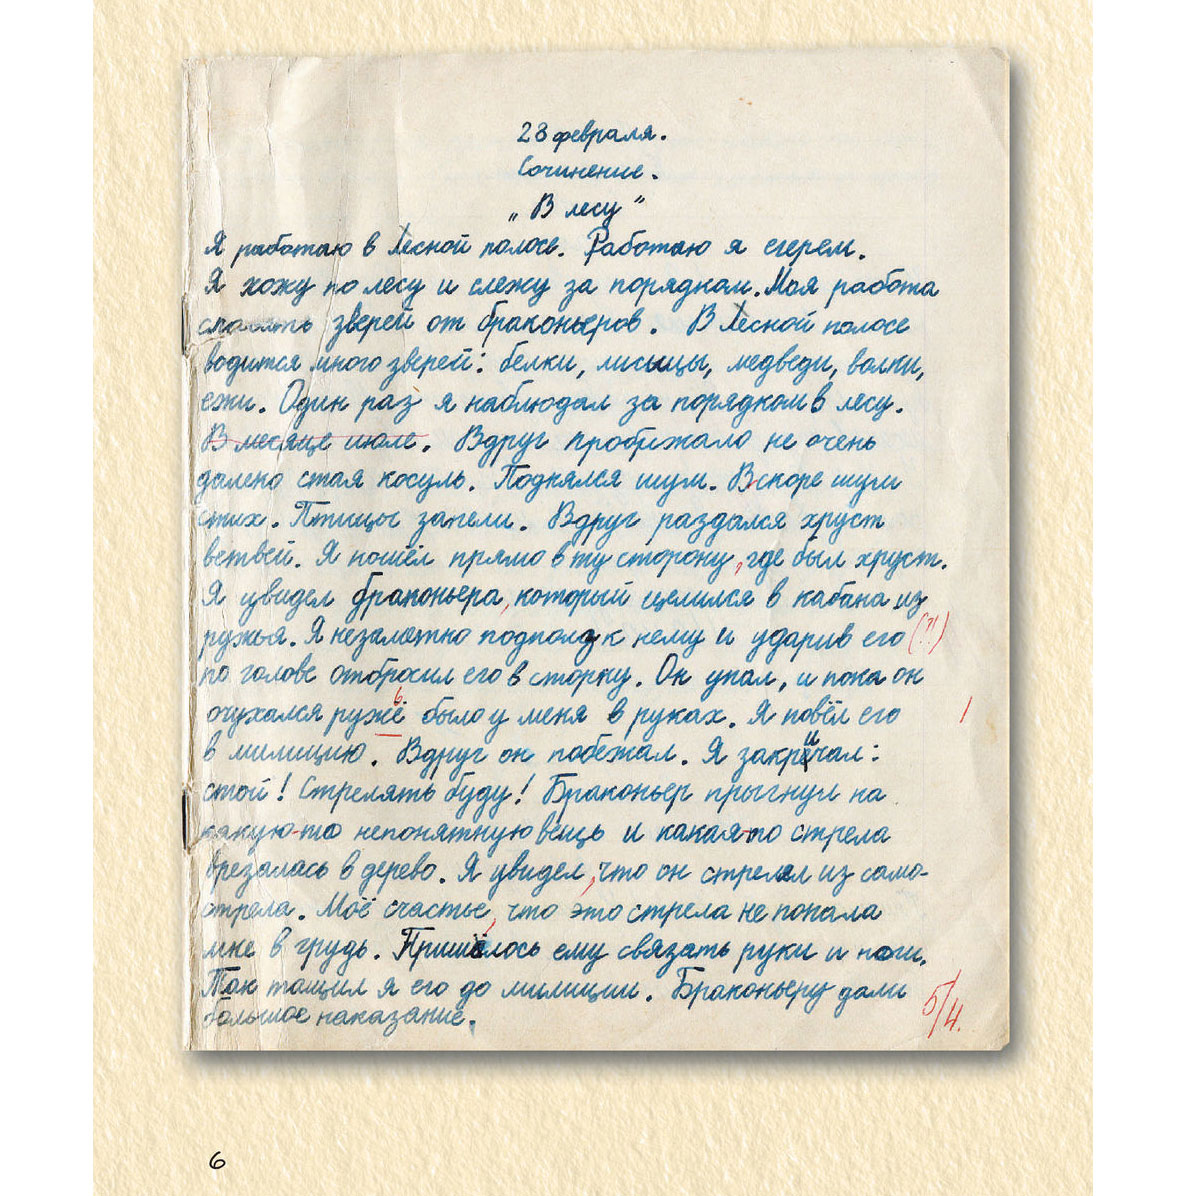 23 февраля.
Сочинение.
„В лесу"
Я работаю в Лесной полосе. Работаю я егерем.
Я хожу по лесу и слежу за порядком. Моя работа
спасать зверей от браконьеров. В Лесной полосе
водится много зверей: белки, лисыцы, медведи, волки,
ежи. Один раз я наблюдал за порядком в лесу.
В месяце июле. Вдруг пробежало не очень
далеко стая косуль. Поднялся шум. Вскоре шум
стих. Птицы запели. Вдруг раздался хруст
ветвей. Я пошёл прямо в ту сторону, где был хруст.
Я увидел браконьера, который целился в кабана из
ружья. Я незаметно подполз к нему и ударив его (?!)
по голове отбросил его в сторку. Он упал, и пока он
очухался ружьё было у меня в руках. Я повёл его
в милицию. Вдруг он побежал. Я закричал:
стой! Стрелять буду! Браконьер прыгнул на
какую-то непонятную вещь и какая-то стрела
врезалась в дерево. Я увидел, что он стрелял из само-
стрела. Моё счастье, что это стрела не попала
мне в грудь. Пришлось ему связать руки и ноги.
Так тащил я его до милиции. Браконьеру дали
большое наказание.
5/4.
6